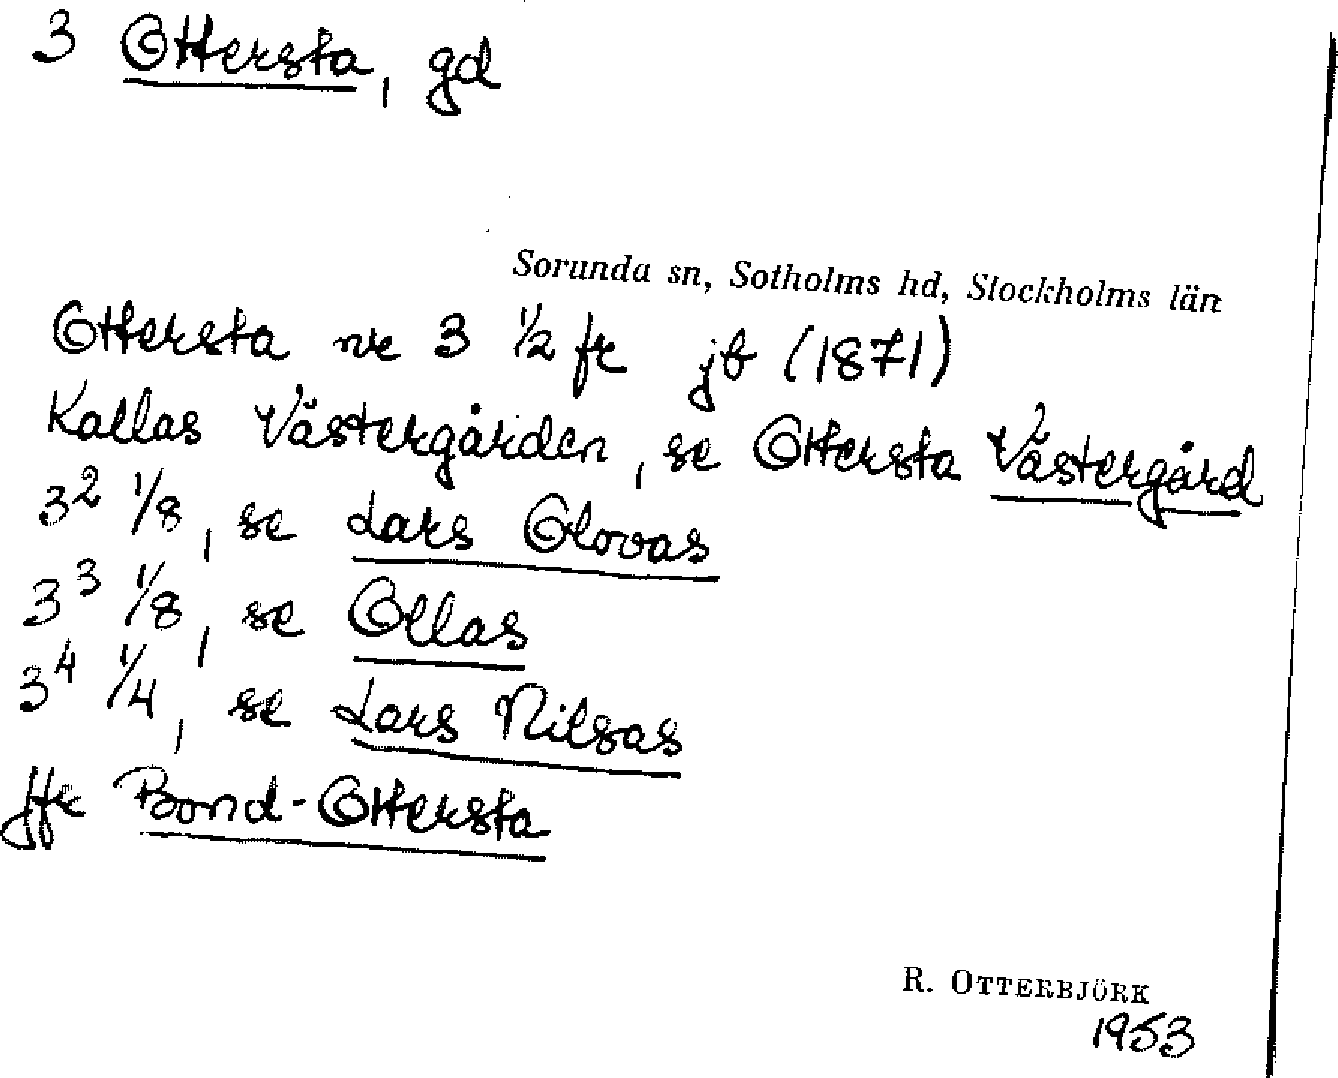 3 Ottersta, gd
Sorunda sn, Sotholms hd, Stockholms län
Ottersta nr 3 1/2 fr jb (1871)
Kallas Västergården, se Ottersta Västergård
3² 1/8, se Lars Olovas
3³ 1/8, se Ollas
3⁴ 1/4, se Lars Nilsas
Jfr Bond-Ottersta
R. OTTERBJÖRK
1953